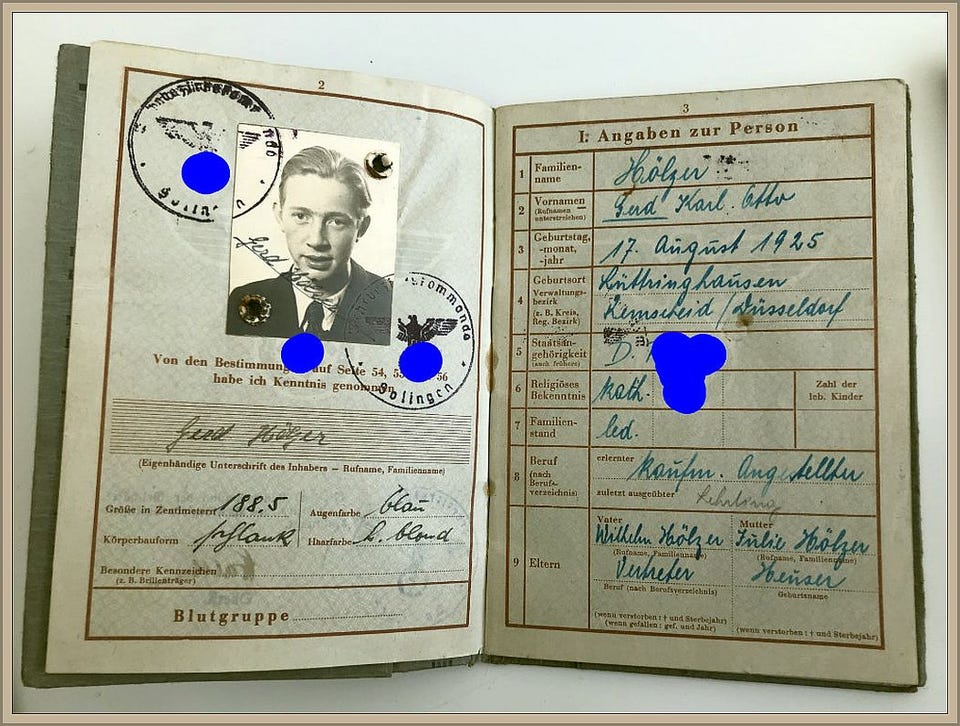 2
Solingen
Gerd
Von den Bestimmungen auf Seite 54, 55 56
habe ich Kenntnis genommen
Solingen
Gerd Hölzer
(Eigenhändige Unterschrift des Inhabers — Rufname, Familienname)
Größe in Zentimetern 188.5 Augenfarbe blau
Körperbauform schlank Haarfarbe h. blond
Besondere Kennzeichen
(z. B. Brillenträger)
Blutgruppe
3
I. Angaben zur Person
1 Familien-
name Hölzer
2 Vornamen
(Rufnamen
unterstreichen) Gerd Karl. Otto
3 Geburtstag,
-monat,
-jahr 17. August 1925
4 Geburtsort Lüttringhausen
Verwaltungs-
bezirk
(z. B. Kreis,
Reg. Bezirk) Remscheid / Düsseldorf
5 Staatsan-
gehörigkeit
(auch frühere) D.
6 Religiöses
Bekenntnis kath.
Zahl der
leb. Kinder
7 Familien-
stand led.
8 Beruf
(nach
Berufs-
verzeichnis)
erlernter Kaufm. Angestellter
zuletzt ausgeübter Lehrling
9 Eltern
Vater Mutter
Wilhelm Hölzer Julie Hölzer
(Rufname, Familienname) (Rufname, Familienname)
Vertreter Heuser
Beruf (nach Berufsverzeichnis) Geburtsname
(wenn verstorben: † und Sterbejahr)
(wenn gefallen: gef. und Jahr) (wenn verstorben: † und Sterbejahr)